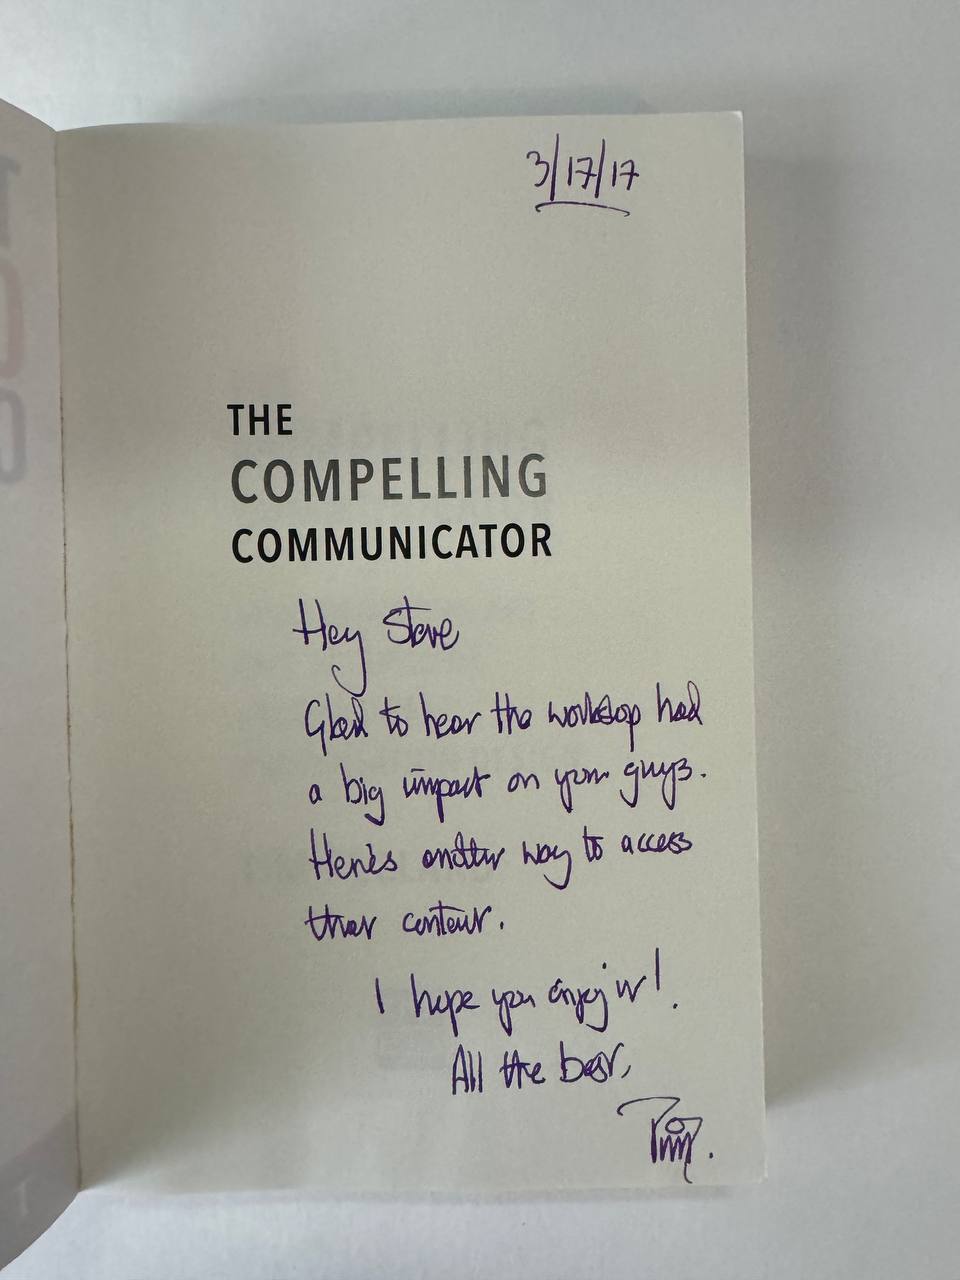 3/17/17
THE
COMPELLING
COMMUNICATOR
Hey Steve
Glad to hear the workshop had
a big impact on your guys.
Here's another way to access
that content.
I hope you enjoy it!
All the best,
Tim.